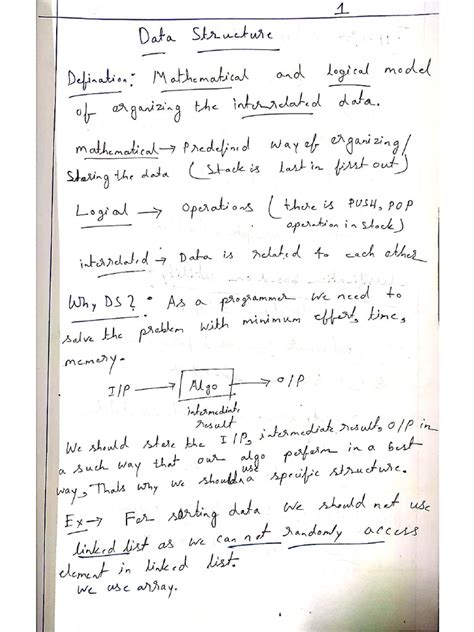 1
Data Structure
Defination: Mathematical and logical model
of organizing the interrelated data.
mathematical → Predefined way of organizing/
Storing the data (Stack is last in first out)
Logial → Operations (there is PUSH, POP
operation in stack)
interrelated → Data is related to each other
Why DS? : As a programmer we need to
solve the problem with minimum effort, time,
memory.
I/P → Algo → O/P
intermediate
result
We should store the I/P, intermediate result, O/P in
a such way that our algo perform in a best
way, Thats why we should use a specific structure.
Ex → For sorting data we should not use
linked list as we can not randomly access
element in linked list.
we use array.